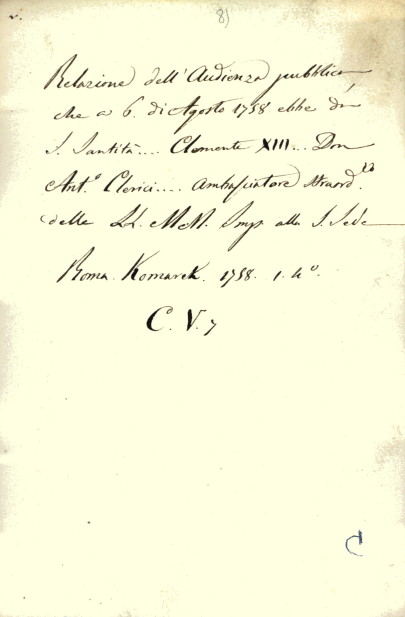 81
Relazione dell'Audienza pubblica,
che a 6. di Agosto 1758 ebbe da
S. Santità.... Clemente XIII... Don
Ant.º Clerici.... Ambasciatore Straord.rio
delle LL. MM. Imp. alla S. Sede
Roma. Komarek. 1758. 1. 4º.
C. V. 7